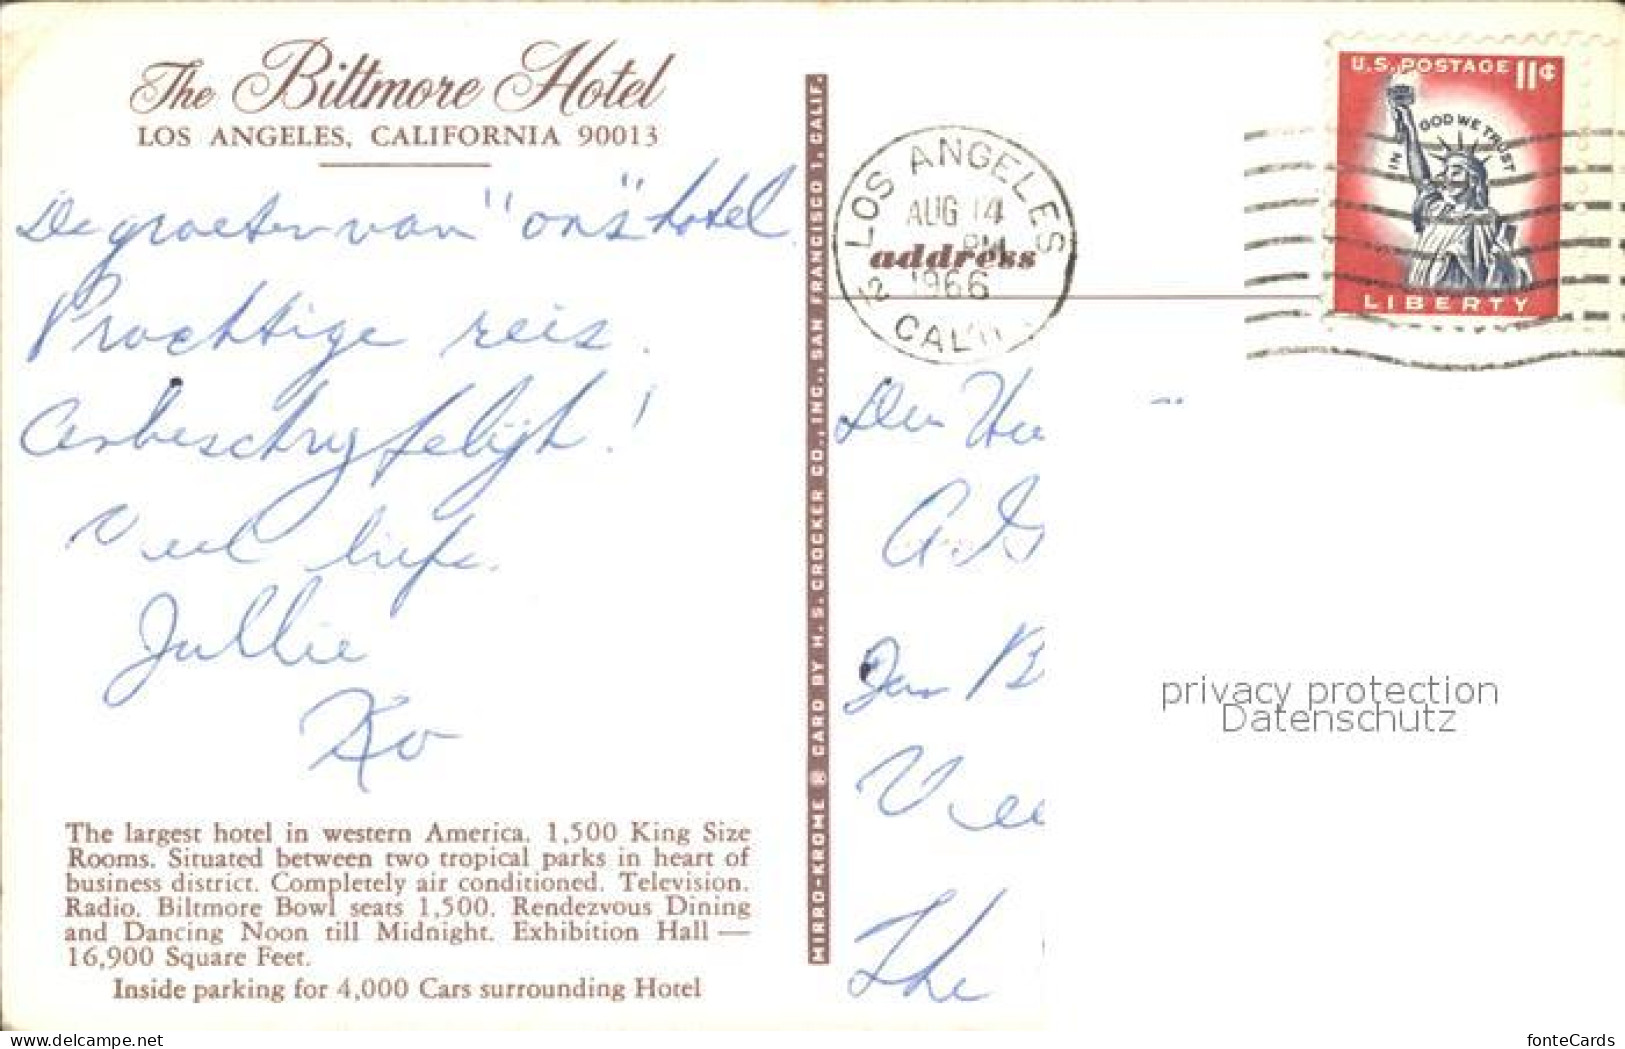 The Biltmore Hotel
LOS ANGELES, CALIFORNIA 90013
De groeten van "ons" hotel.
Prachtige reis.
Onbeschryfelijk!
Veel liefs.
Jullie
Ko
The largest hotel in western America. 1,500 King Size
Rooms. Situated between two tropical parks in heart of
business district. Completely air conditioned. Television.
Radio. Biltmore Bowl seats 1,500. Rendezvous Dining
and Dancing Noon till Midnight. Exhibition Hall —
16,900 Square Feet.
Inside parking for 4,000 Cars surrounding Hotel
MIRRO-KROME ® CARD BY H. S. CROCKER CO., INC., SAN FRANCISCO 1, CALIF.
LOS ANGELES
AUG 14
PM
12 1966
CALIF
address
U.S. POSTAGE 11¢
IN GOD WE TRUST
LIBERTY
Den
A.
B
The
privacy protection
Datenschutz
www.delcampe.net
fonteCards